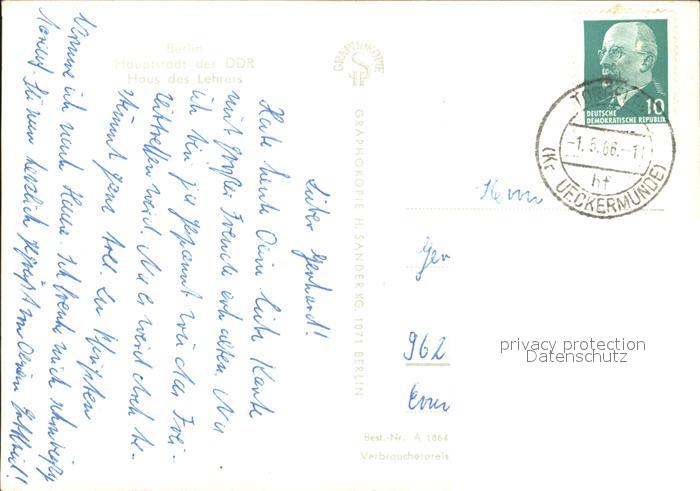 Berlin
Hauptstadt der DDR
Haus des Lehrers
Lieber Gerhard!
Habe heute Deine liebe Karte
mit großer Freude erhalten. Na
ich bin ja gespannt wie das Frei-
zeittreffen wird. Na es wird doch be-
stimmt ganz toll. Zu Pfingsten
komme ich nach Hause. Ich freue mich
Sei nun herzlich gegrüßt von Deiner
GRAPHOKOPIE
GRAPHOKOPIE H. SANDER KG, 1071 BERLIN
10
DEUTSCHE
DEMOKRATISCHE REPUBLIK
-1.5.66.-11
hf
(Kr UECKERMÜNDE)
Herrn
Ger
962
privacy protection
Datenschutz
Best.-Nr. A 1864
Verbraucherpreis